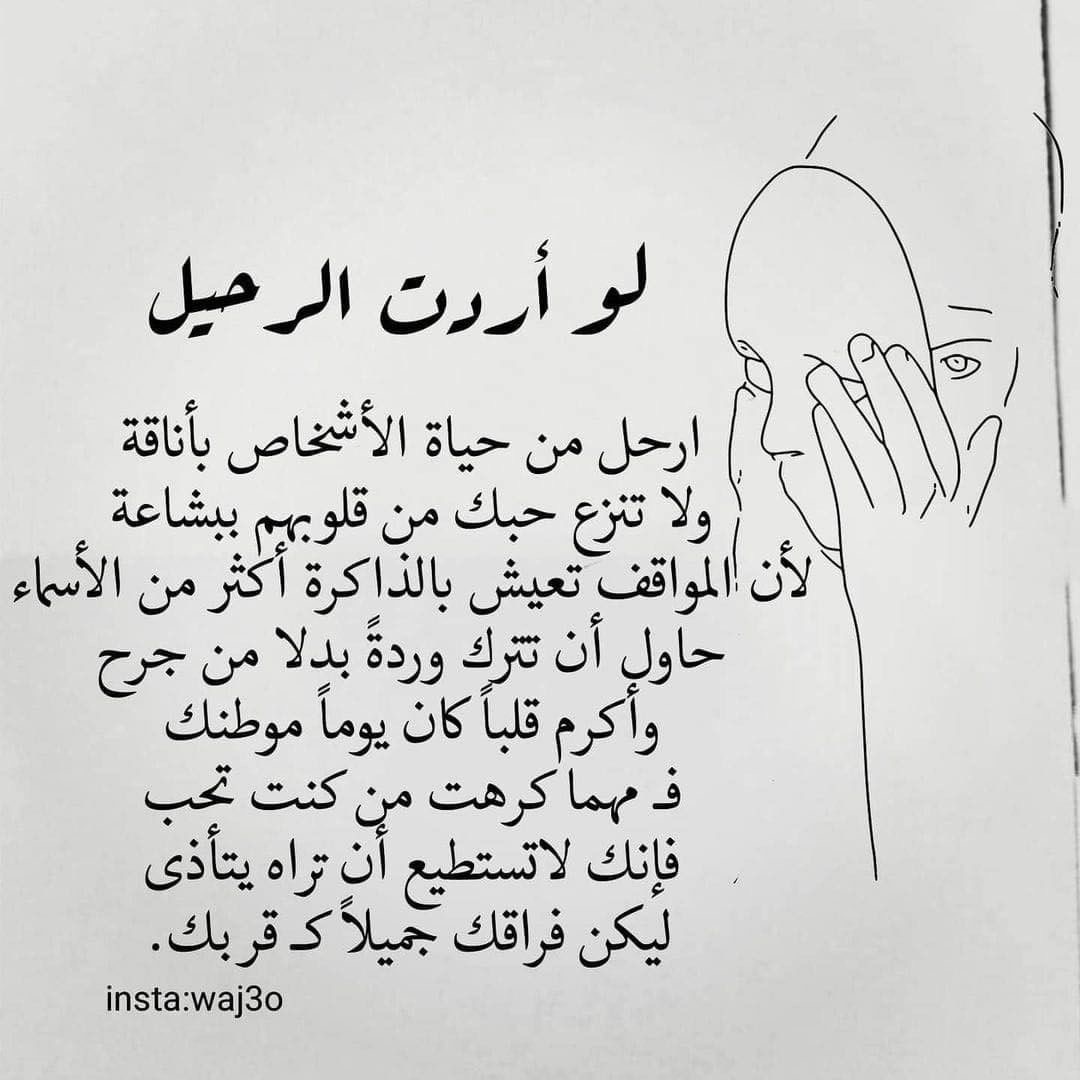 لو أردت الرحيل
ارحل من حياة الأشخاص بأناقة
ولا تنزع حبك من قلوبهم ببشاعة
لأن المواقف تعيش بالذاكرة أكثر من الأسماء
حاول أن تترك وردةً بدلا من جرح
وأكرم قلباً كان يوماً موطنك
فـ مهما كرهت من كنت تحب
فإنك لاتستطيع أن تراه يتأذى
ليكن فراقك جميلاً كـ قربك.
insta:waj3o